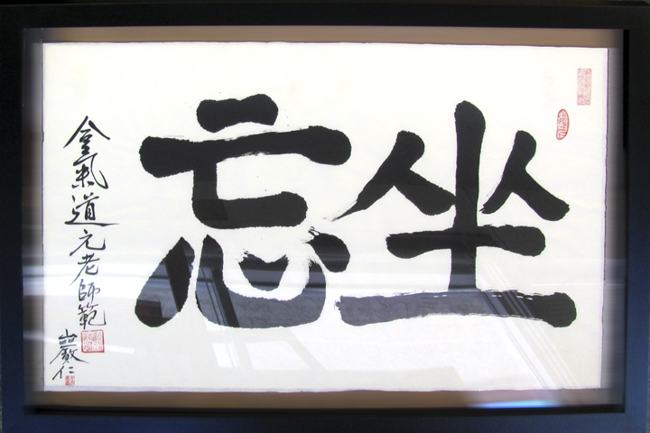 坐忘
合氣道元老師範
巖仁